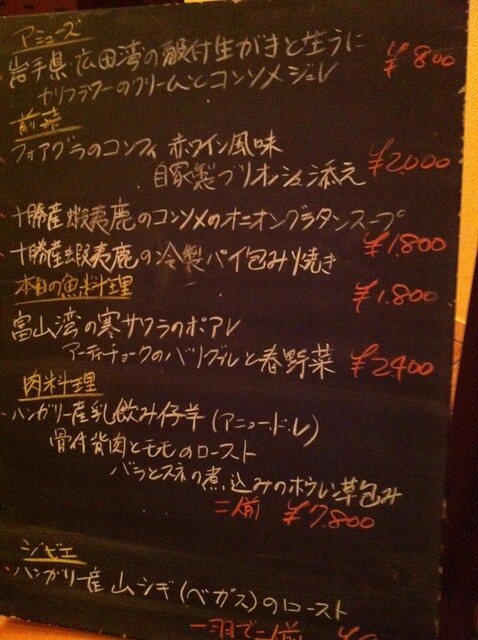 アミューズ
岩手県 広田湾の殻付生がきと生うに
カリフラワーのクリームとコンソメジュレ ¥800
前菜
フォアグラのコンフィ 赤ワイン風味
自家製ブリオシュ添え ¥2,000
十勝産蝦夷鹿のコンソメのオニオングラタンスープ
¥1,800
十勝産蝦夷鹿の冷製パイ包み焼き
¥1,800
本日の魚料理
富山湾の寒サワラのポアレ
アーティーチョークのバリグルと春野菜 ¥2400
肉料理
ハンガリー産乳飲み仔羊(アニョー・ド・レ)
骨付背肉とモモのロースト
バラとスネの煮込みのホウレン草包み
二人前 ¥7,800
ジビエ
ハンガリー産 山シギ(ベガス)のロースト
一羽で二人前